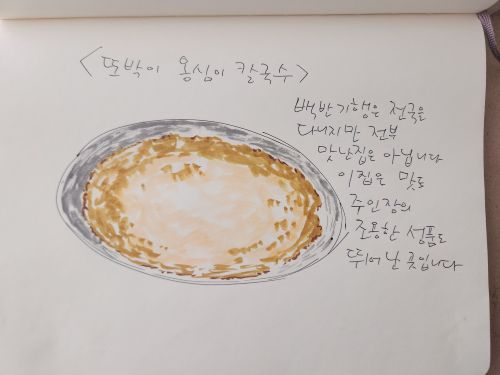 <또박이 옹심이 칼국수>
백반기행은 전국을
다니지만 전부
맛난집은 아닙니다
이집은 맛도
주인장의
조용한 성품도
뛰어난 곳입니다